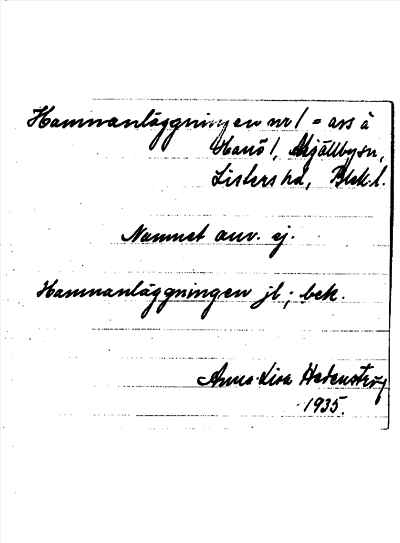 Hamnanläggningen nr 1 = ass å
Hanö 1, Mjällby sn,
Listers hd, Blek. l.
Namnet anv. ej.
Hamnanläggningen jl; bek.
Anna-Lisa Hedenstierg
1935.